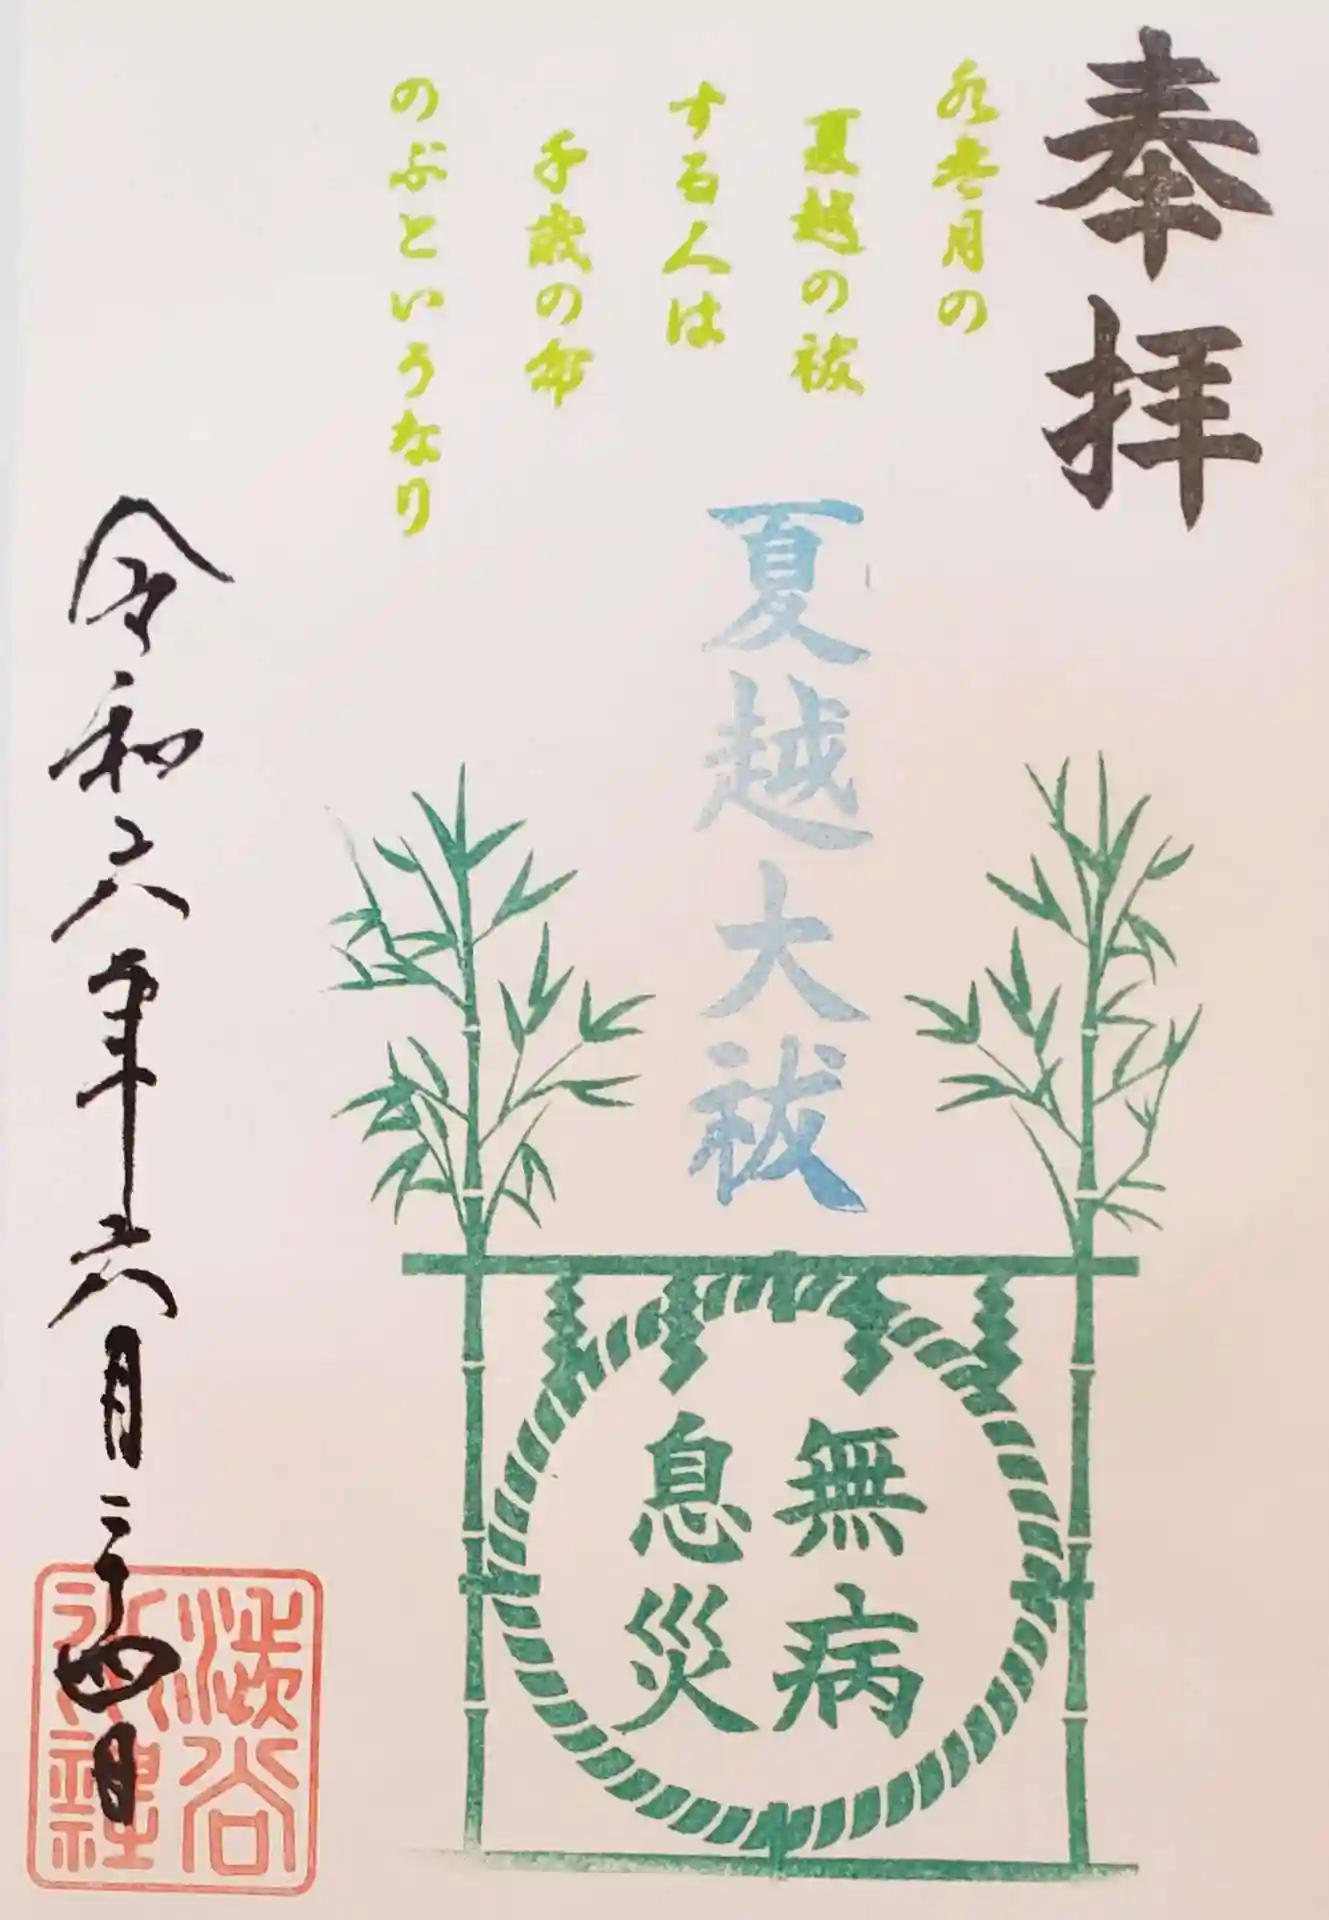 奉拝
水無月の
夏越の祓
する人は
千歳の命
のぶというなり
夏越大祓
無病
息災
令和六年六月二十四日
渋谷
氷川
神社